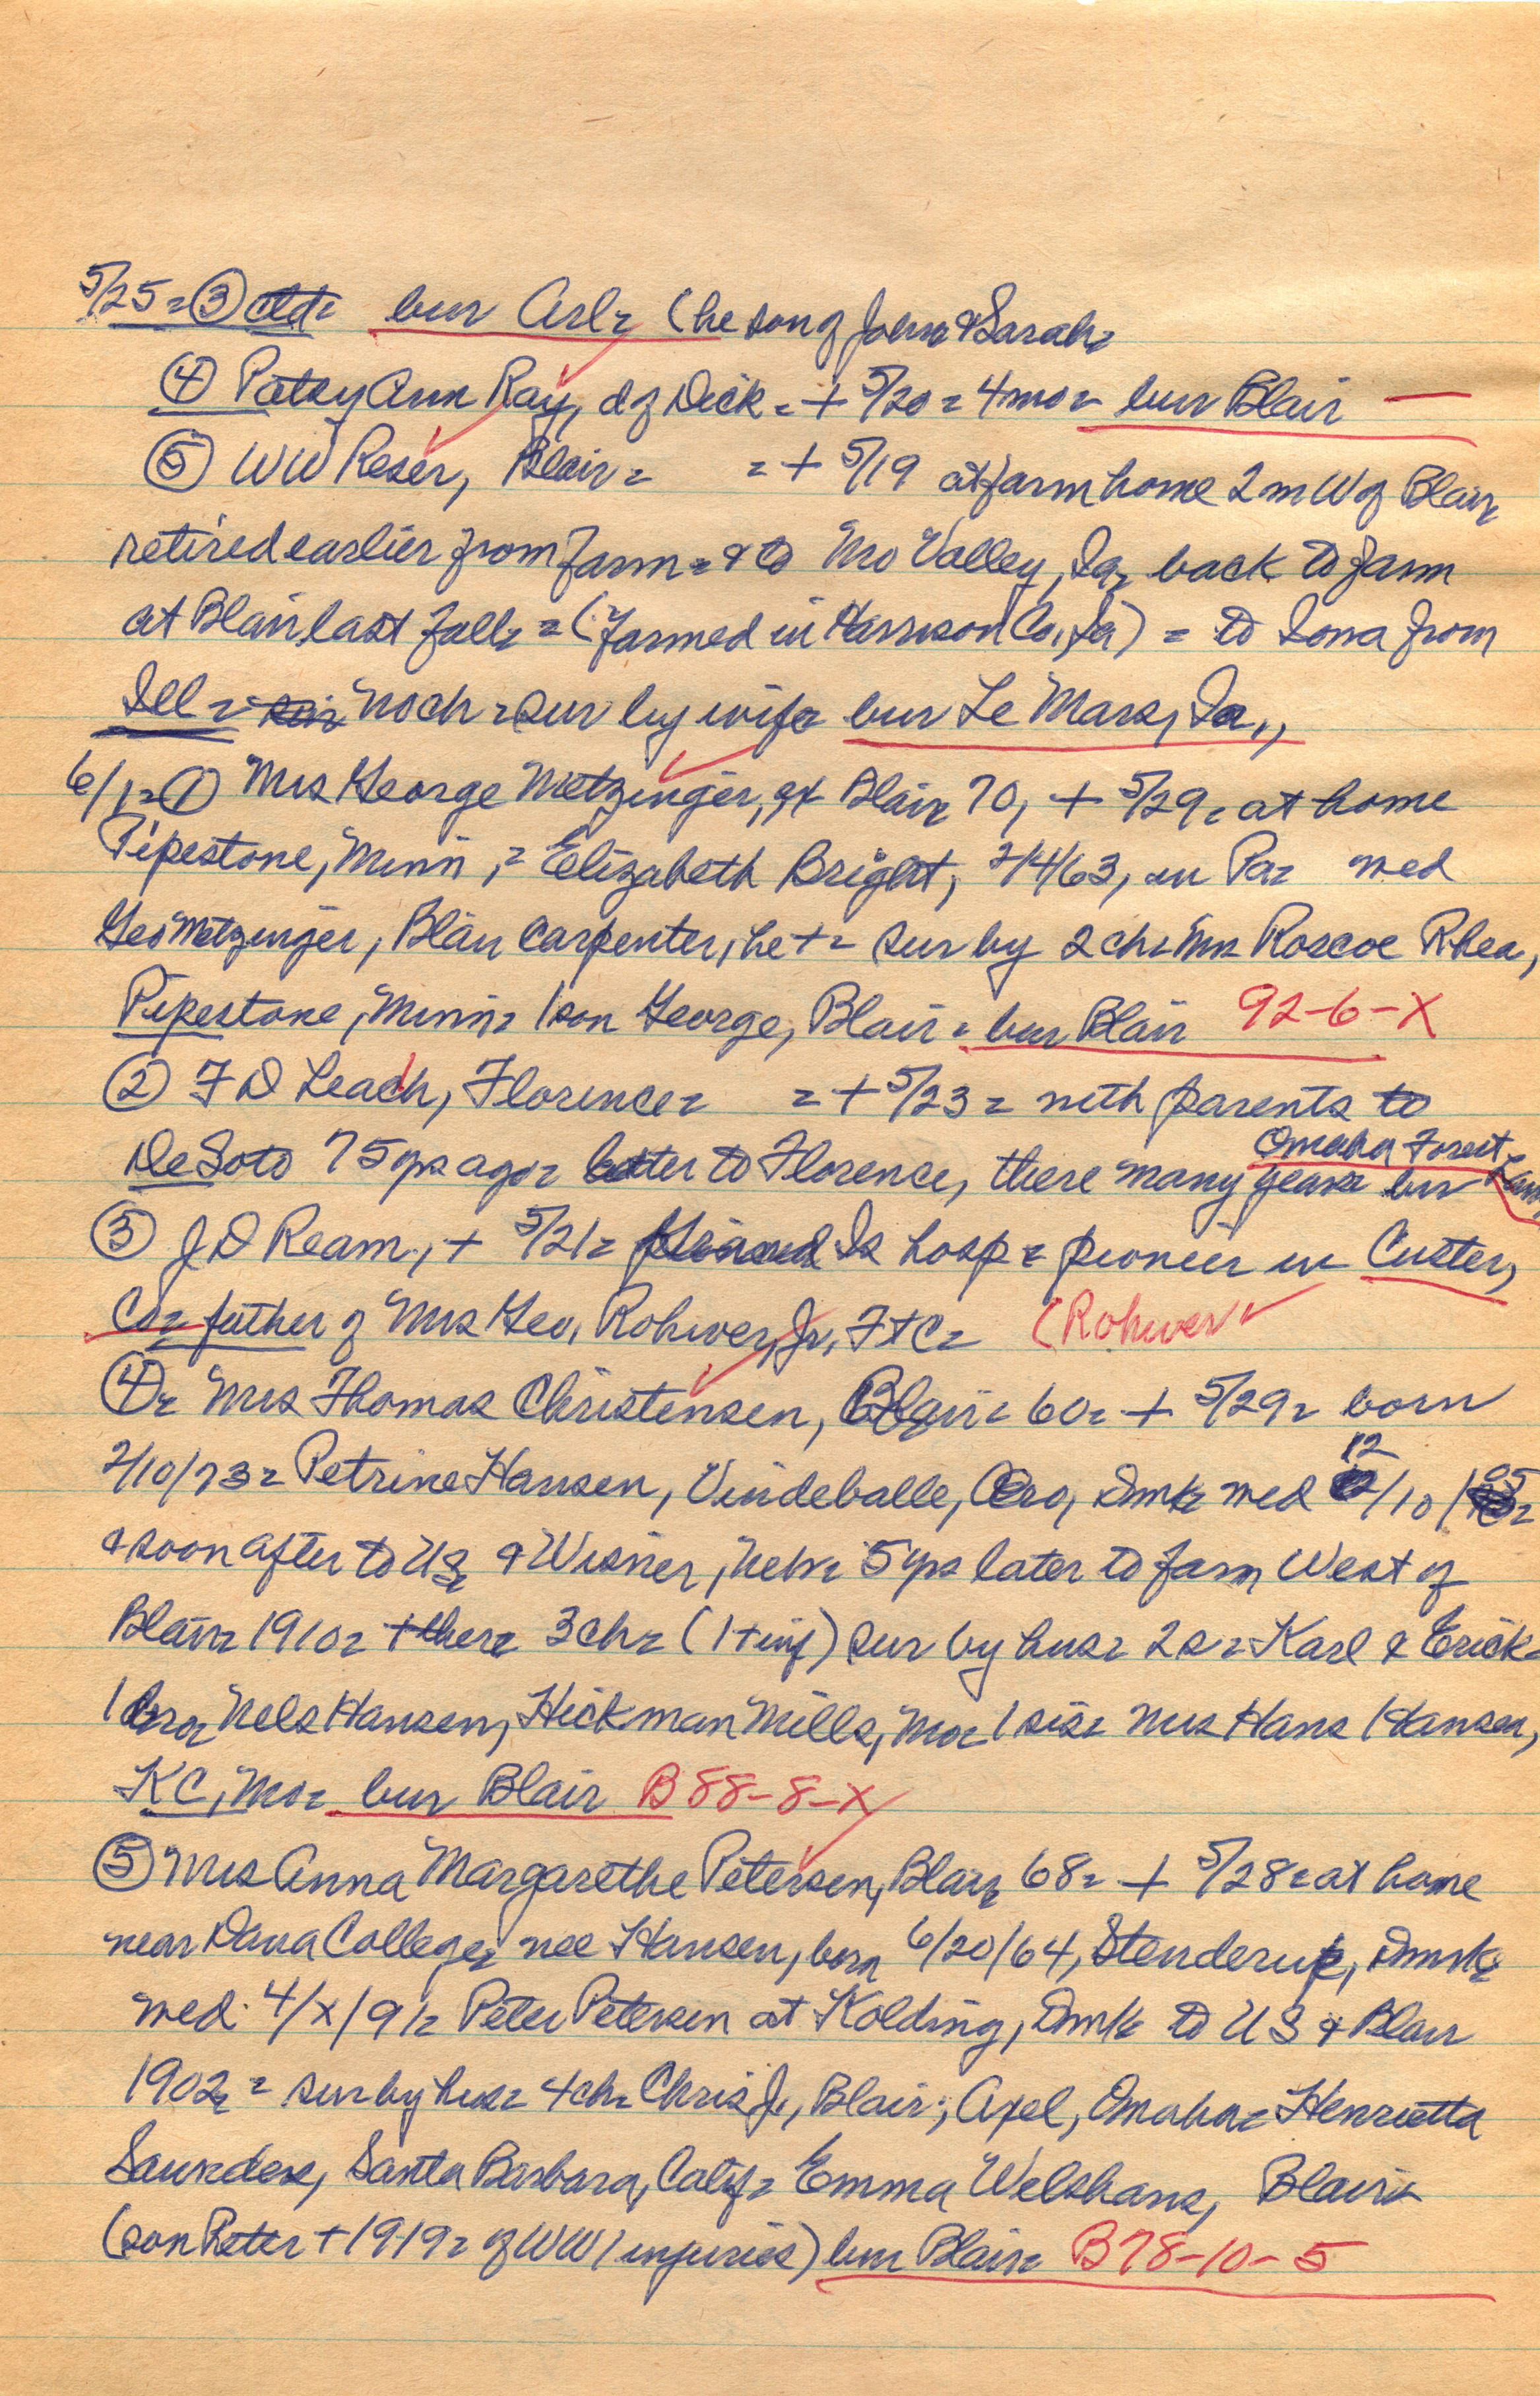 5/25 = ③ ctd= bur Arl= (he son of John & Sarah=
④ Patsy Ann Ray, d of Dick = + 5/20 = 4 mo = bur Blair —
⑤ WW Reser, Blair = = + 5/19 at farm home 2 m W of Blair=
retired earlier from farm = & to Mo Valley, Ia= back to farm
at Blair last fall= = (farmed in Harrison Co, Ia) = to Iowa from
Ill = no ch = sur by wife= bur Le Mars, Ia,,
6/1= ① Mrs George Metzinger, ex Blair= 70, + 5/29= at home
Pipestone, Minn, = Elizabeth Bright, 2/4/63, in Pa= med
Geo Metzinger, Blair carpenter, he + = sur by 2 ch= Mrs Roscoe Rhea,
Pipestone, Minn= 1 son George, Blair = bur Blair 92-6-X
② F D Leach, Florence= = + 5/23 = with parents to
Omaha Forest
DeSoto 75 yrs ago= later to Florence, there many years= bur Lawn,
③ J D Ream, + 5/21= Grand Is hosp = pioneer in Custer,
Co= father of Mrs Geo, Rohwer, Jr, Ft C= (Rohwer
④= Mrs Thomas Christensen, Blair= 60= + 5/29= born
2/10/73= Petrine Hansen, Vindeballe, Aero, Dmk= med 12/10/05=
& soon after to US= & Wisner, Nebr= 5 yrs later to farm West of
Blair= 1910= + there 3 ch= (1 + inf) sur by hus= 2 s= Karl & Erick=
1 bro= Nels Hansen, Hickman Mills, Mo= 1 sis= Mrs Hans Hansen,
KC, Mo= bur Blair B 88-8-X
⑤ Mrs Anna Margarethe Petersen, Blair= 68= + 5/28= at home
near Dana College= nee Hansen, born 6/20/64, Stenderup, Dmk=
med 4/x/91= Peter Petersen at Kolding, Dmk= to US & Blair
1902= = sur by hus= 4 ch= Chris J, Blair; Axel, Omaha= Henrietta
Saunders, Santa Barbara, Calif= Emma Welshans, Blair=
(son Peter + 1919= of WW1 injuries) bur Blair= B78-10-5